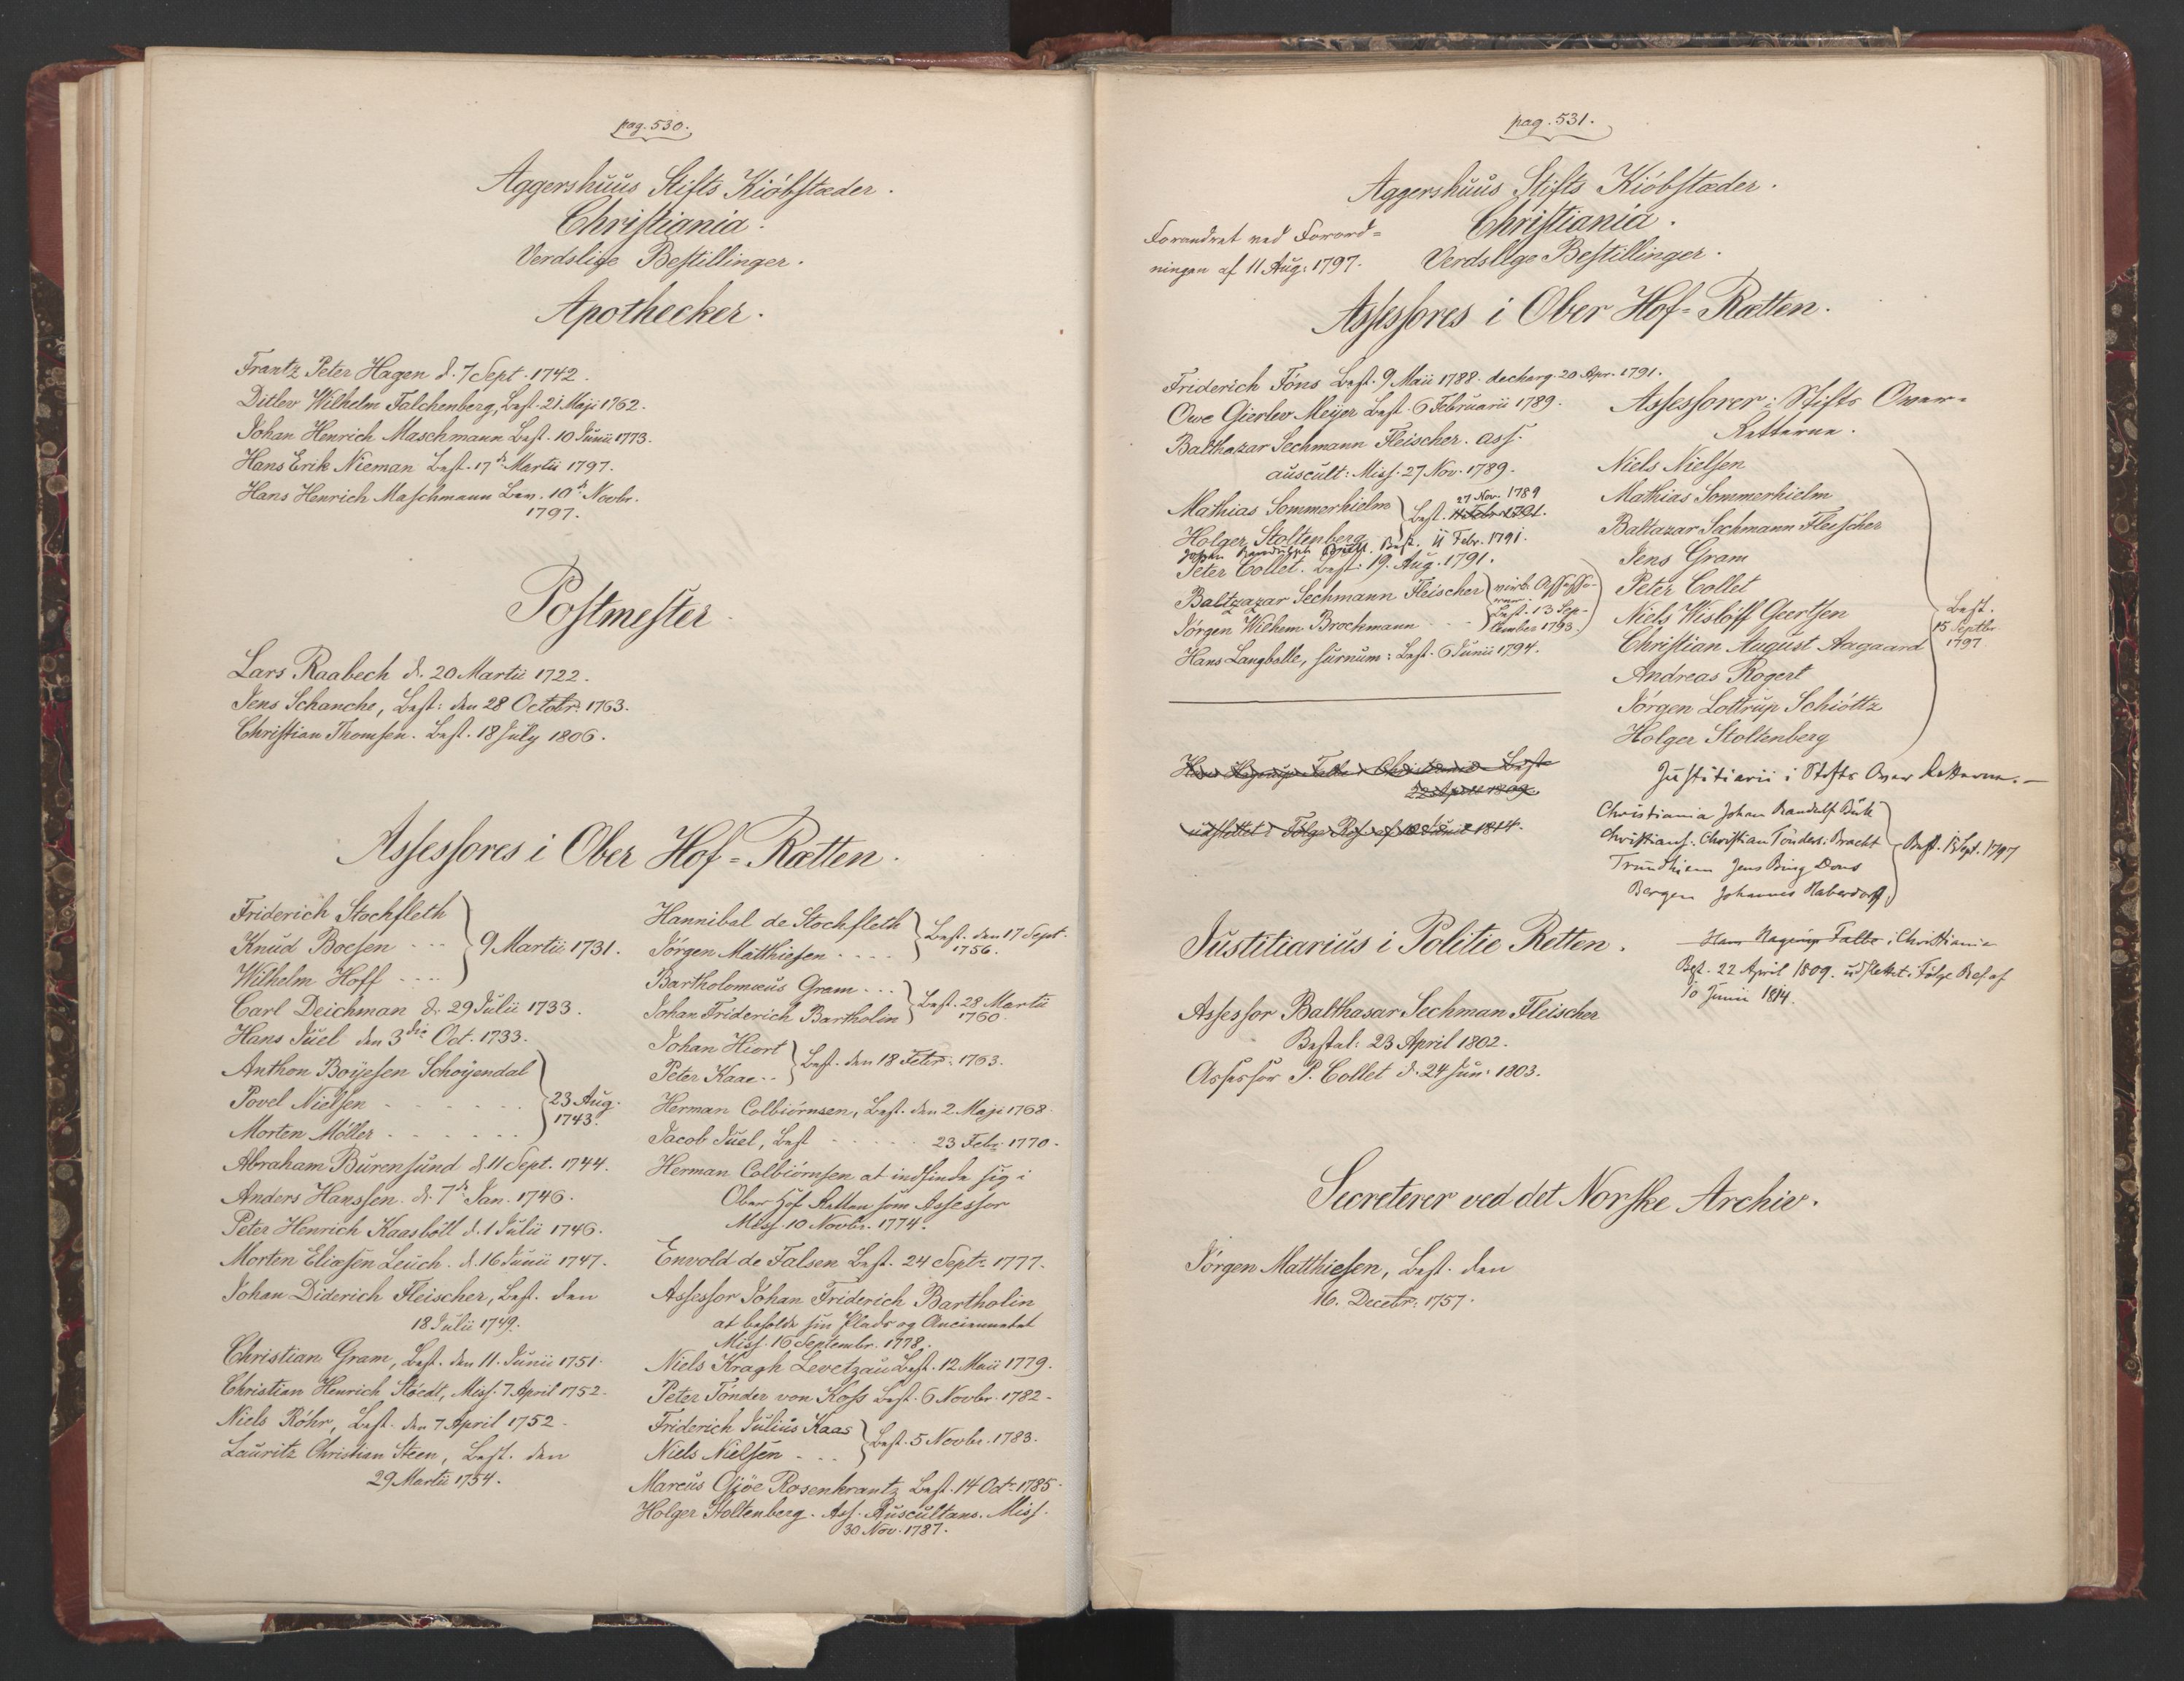 pag. 530.
Aggershuus Stifts Kiöbstæder.
Christiania.
Verdslige Bestillinger.
Apothecker.
Frantz Peter Hagen d. 7 Sept. 1742.
Ditlev Wilhelm Falchenberg, Best. 21 Maji 1762.
Johan Henrich Maschmann Best. 10 Junii 1773.
Hans Erik Nieman Best. 17de Martii 1797.
Hans Henrich Maschmann Bev. 10de Novbr.
1797.
Postmester
Lars Raabech d. 20 Martii 1722.
Jens Schanche, Best: den 28 Octobr. 1763.
Christian Thomsen. Best. 18 July 1806.
Assessores i Ober Hof-Rætten.
Friderich Stochfleth
Knud Boesen - - -
Wilhelm Hoff - - - -
9 Martii 1731.
Carl Deichman d. 29 Julii 1733.
Hans Juel den 3die Oct. 1733.
Anthon Boÿesen Schoÿendal
Povel Nielsen - - - - - -
Morten Möller - - - - - -
23 Aug.
1743.
Abraham Bürensund d. 11 Sept. 1744.
Anders Hanssen. d. 7de Jan. 1746.
Peter Henrich Kaasböll d. 1 Julii 1746.
Morten Eliæsen Leuch. d. 16 Junii 1747.
Johan Diderich Fleischer, Best. den
18 Julii 1749.
Christian Gram, Best. den 11. Junii 1751.
Christian Henrich Stöcdt, Miss. 7 April 1752.
Niels Röhr, Best. den 7 April 1752.
Lauritz Christian Steen, Best. den
29 Martii 1754.
Hannibal de Stochfleth
Jörgen Matthiesen - - - -
Best. den 17 Sept.
1756.
Bartholomæus Gram - - -
Johan Friderich Bartholin
Best. 28 Martii
1760.
Johan Hiort
Peter Kaae - -
Best. den 18 Febr. 1763.
Herman Colbiörnsen, Best. den 2 Maji 1768.
Jacob Juel, Best - - - - - 23 Febr. 1770.
Herman Colbiörnsen at indfinde sig i
Ober Hof Retten som Assessor
Miss. 10 Novbr. 1774.
Envold de Falsen Best. 24 Septr. 1777.
Assessor Johan Friderich Bartholin
at beholde sin Plads og Anciennetet
Miss. 16 Septembr. 1778.
Niels Kragh Levetzau Best. 12 Maii 1779.
Peter Tönder von Koss Best. 6 Novbr. 1782.
Friderich Julius Kaas
Niels Nielsen - - -
Best. 5 Novbr. 1783.
Marcus Gjöe Rosenkrantz Best. 14 Octr. 1785.
Holger Stoltenberg. Ass. Auscultans. Miss.
30 Nov. 1787.
pag. 531.
Aggershuus Stifts Kiöbstæder.
Christiania.
Forandret ved Forord=
ningen af 11 Aug: 1797.
Verdslige Bestillinger.
Assessores i Ober Hof-Rætten.
Friderich Föns Best. 9 Maii 1788. decharg. 20 Apr. 1791.
Owe Gierlev Meÿer Best. 6 Februarii 1789.
Balthazar Sechmann Fleischer. ass.
auscult: Miss. 27 Nov. 1789.
Mathias Sommerhielm
27 Nov. 1789
Best. 11 Febr 1791.
Holger Stoltenberg
Best. 11 Febr. 1791.
Peter Collet. Best: 19. Aug. 1791.
Baltzazar Sechmann Fleischer
Jörgen Wilhem Brochmann - - -
virk. Assesso-
rer.
Best. 13 Sep-
tember 1793.
Hans Langballe, surnum: Best. 6 Junii 1794.
22 April 1809
udslettet i Følge Res. af 10 Junii 1814.
Assessorer i Stifts Over-
Retterne.
Niels Nielsen
Mathias Sommerhielm
Baltazar Sechmann Fleischer
Jens Gram
Peter Collet
Niels Wislöff Geertsen
Christian August Aagaard
Andreas Rogert
Jörgen Lottrup Schiöttz
Holger Stoltenberg
Best.
15 Septbr.
1797
Justitiarii i Stifts Over Retterne.
Christiania Johan Randulf Bull
Christians. Christian Tönders. Bracht
Trundhiem Jens Bing Dons
Bergen Johannes Haberdorf
Best. 15 Sept. 1797
Hans Hagerup Falbe i Christiania
Best. 22 April 1809. udslettet i Følge Res af
10 Junii 1814.
Justitiarius i Politie Retten.
Assessor Balthasar Sechman Fleischer
Bestal: 23 April 1802.
Assessor P. Collet d. 24 Jun: 1803.
Secreterer ved det Norske Archiv.
Jörgen Matthiesen, Best. den
16. Decebr: 1757.